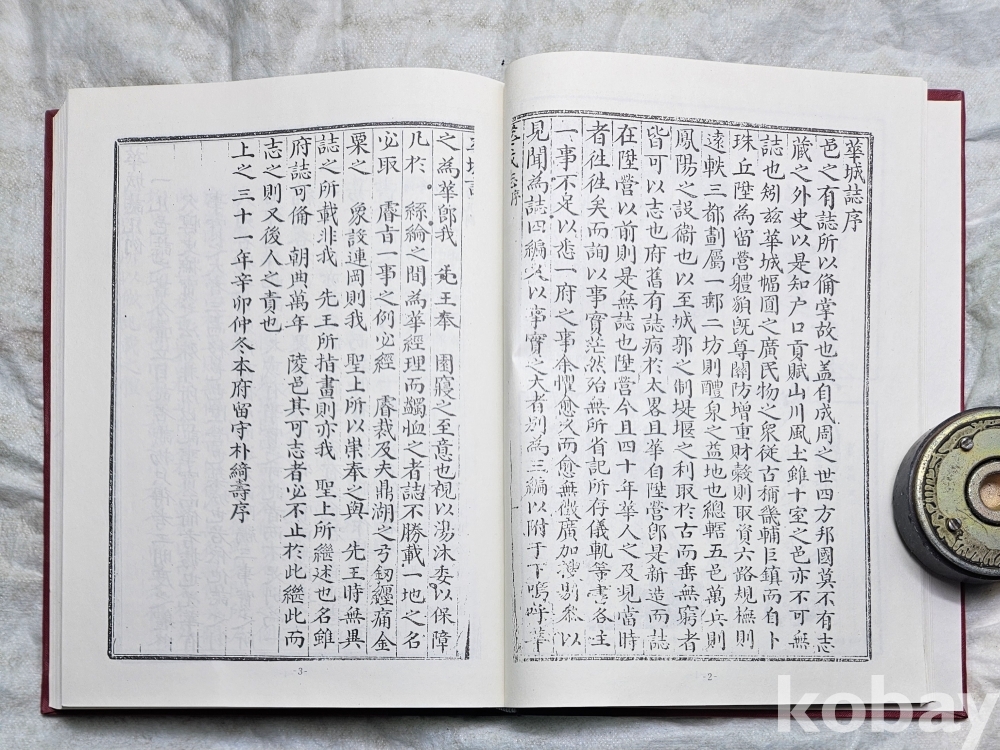 華城誌序
邑之有誌所以備掌故也盖自成周之世四方邦國莫不有志
藏之外史以是知户口貢賦山川風土雖十室之邑亦不可無
誌也矧玆華城幅圓之廣民物之衆從古稱畿輔巨鎭而自卜
珠丘陞為留營軆貌旣尊關防增重財糓則取資六路規橅則
遠軼三都劃屬一郵二坊則醴泉之益地也總轄五邑萬兵則
鳳陽之設衞也以至城郭之制堤堰之利取於古而垂無窮者
皆可以志也府舊有誌病於太畧且華自陞營卽是新造而誌
在陞營以前則是無誌也陞營今且四十年華人之及見當時
者徃徃矣而詢以事實茫然殆無所省記所存儀軌等書各主
一事不足以悉一府之事余懼愈久而愈無徵廣加溲剔叅以
見聞為誌四編又以事實之大者別為三編以附于下嗚呼華
之為華卽我 先王奉 園寢之至意也視以湯沐委以保障
凡於 絲綸之間為華經理而蠲恤之者誌不勝載一地之名
必取 睿旨一事之例必經 睿裁及夫鼎湖之弓劒纒痛金
粟之 象設連岡則我 聖上所以崇奉之與 先王時無異
誌之所載非我 先王所指畫則亦我 聖上所繼述也名雖
府誌可備 朝典萬年 陵邑其可志者必不止於此繼此而
志之則又後人之責也
上之三十一年辛卯仲冬本府留守朴綺壽序
-3-
-2-
kobay